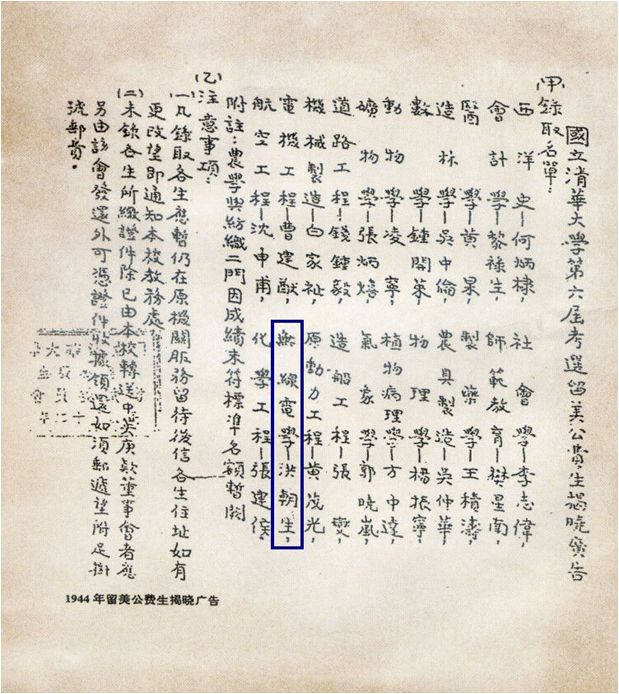 國立清華大學第六屆考選留美公費生揭曉廣告
(甲)錄取名單：
西洋史—何炳棣，社會學—李志偉，
會計學—黎祿生，師範教育—樊星南，
醫學—黃杲，製藥學—王積濤，
造林學—吳中倫，農具製造—吳仲華，
數學—鍾開萊，物理學—楊振寧，
動物學—凌寧，植物病理學—方中達，
礦物學—張炳熺，氣象學—郭曉嵐，
道路工程—錢鍾毅，造船工程—張燮，
機械製造—白家祉，原動力工程—黃茂光，
電機工程—曹建猷，無線電學—洪朝生，
航空工程—沈申甫，化學工程—張建侯，
附註：農學與紡織二門因成績未符標準名額暫闕
(乙)注意事項：
(一)凡錄取各生應暫仍在原機關服務留待後信各生住址如有
更改望即通知本校教務處
(二)未錄各生所繳證件除已由本校轉送中英庚款董事會者應
另由該會發還外可憑證件收據領還如須郵遞望附足掛
號郵費。
1944年留美公费生揭晓广告